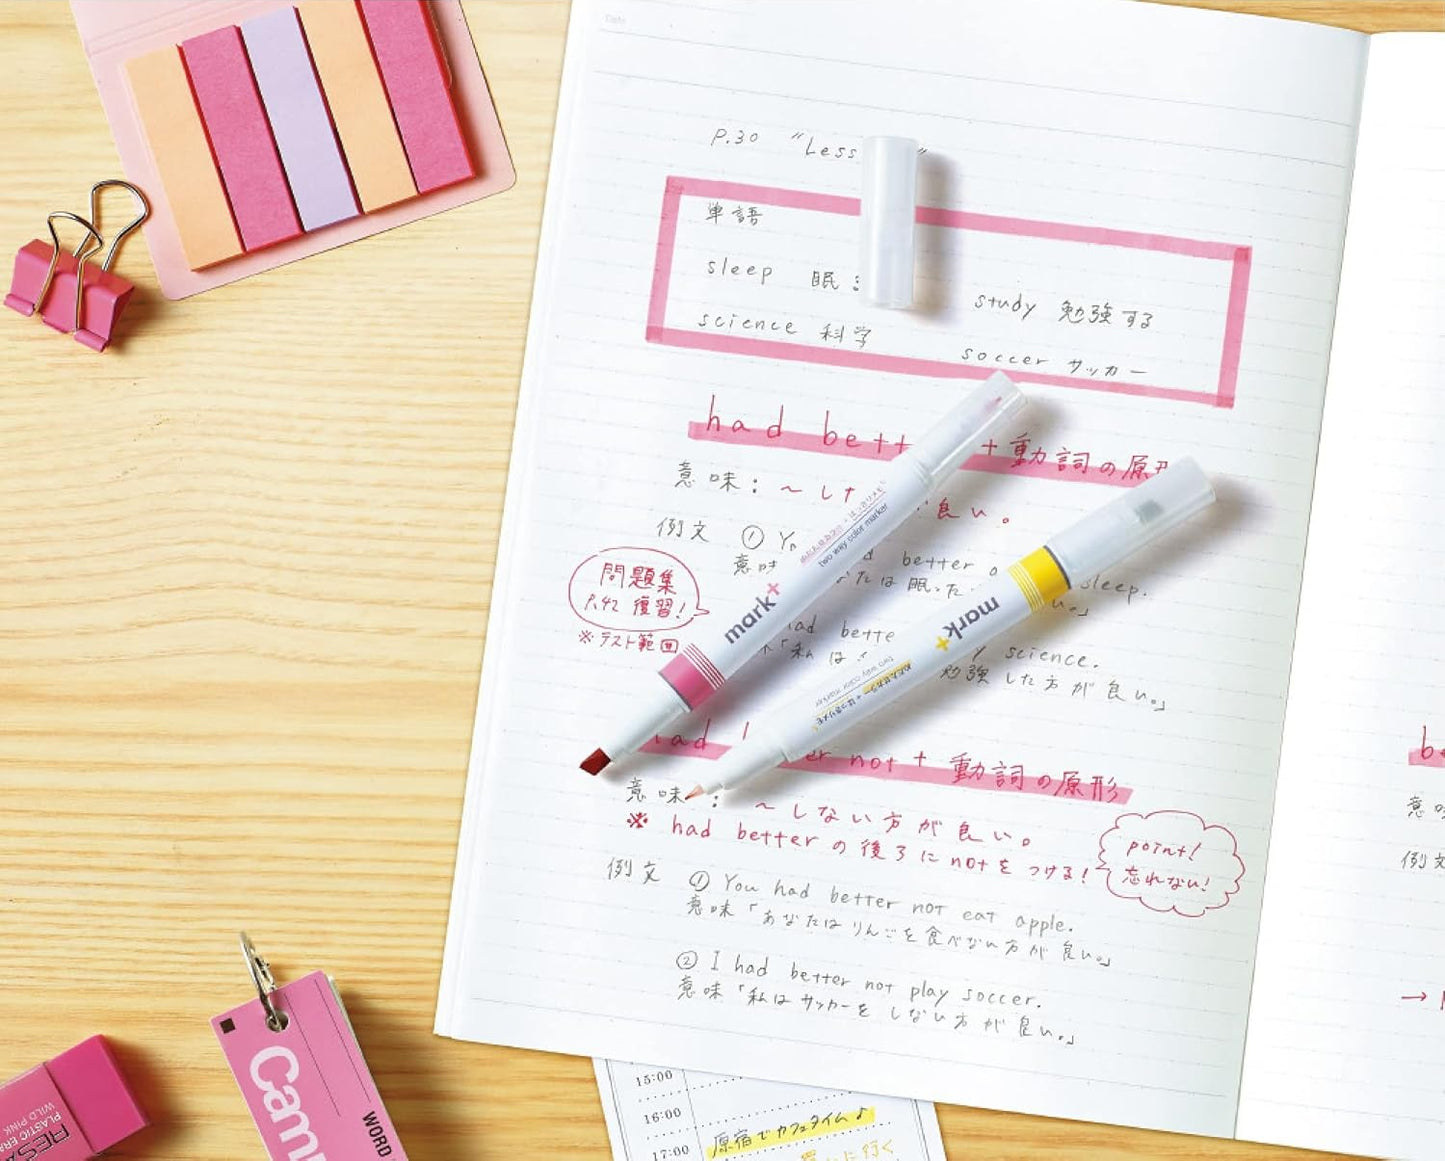 Date
P.30 "Less
単語
sleep 眠:
study 勉強する
science 科学
soccer サッカー
had bett + 動詞の原形
意味: ～した 良い。
例文 ① Yo had better sleep.
意味 なたは眠った 。」
問題集
P.42 復習!
※テスト範囲
had bette y science.
「私は 勉強した方が良い。」
had er not + 動詞の原形
意味: ～しない方が良い。
※ had better の後ろにnotをつける!
point!
忘れない!
例文 ① You had better not eat apple.
意味「あなたはりんごを食べない方が良い。」
② I had better not play soccer.
意味「私はサッカーをしない方が良い。」
mark+
two way color marker
mark+
two way color marker
Cam
WORD
PLASTIC ERA
WILD PINK
15:00
16:00
17:00
原宿でカフェタイム♪
いに行く
be
意
例文
→